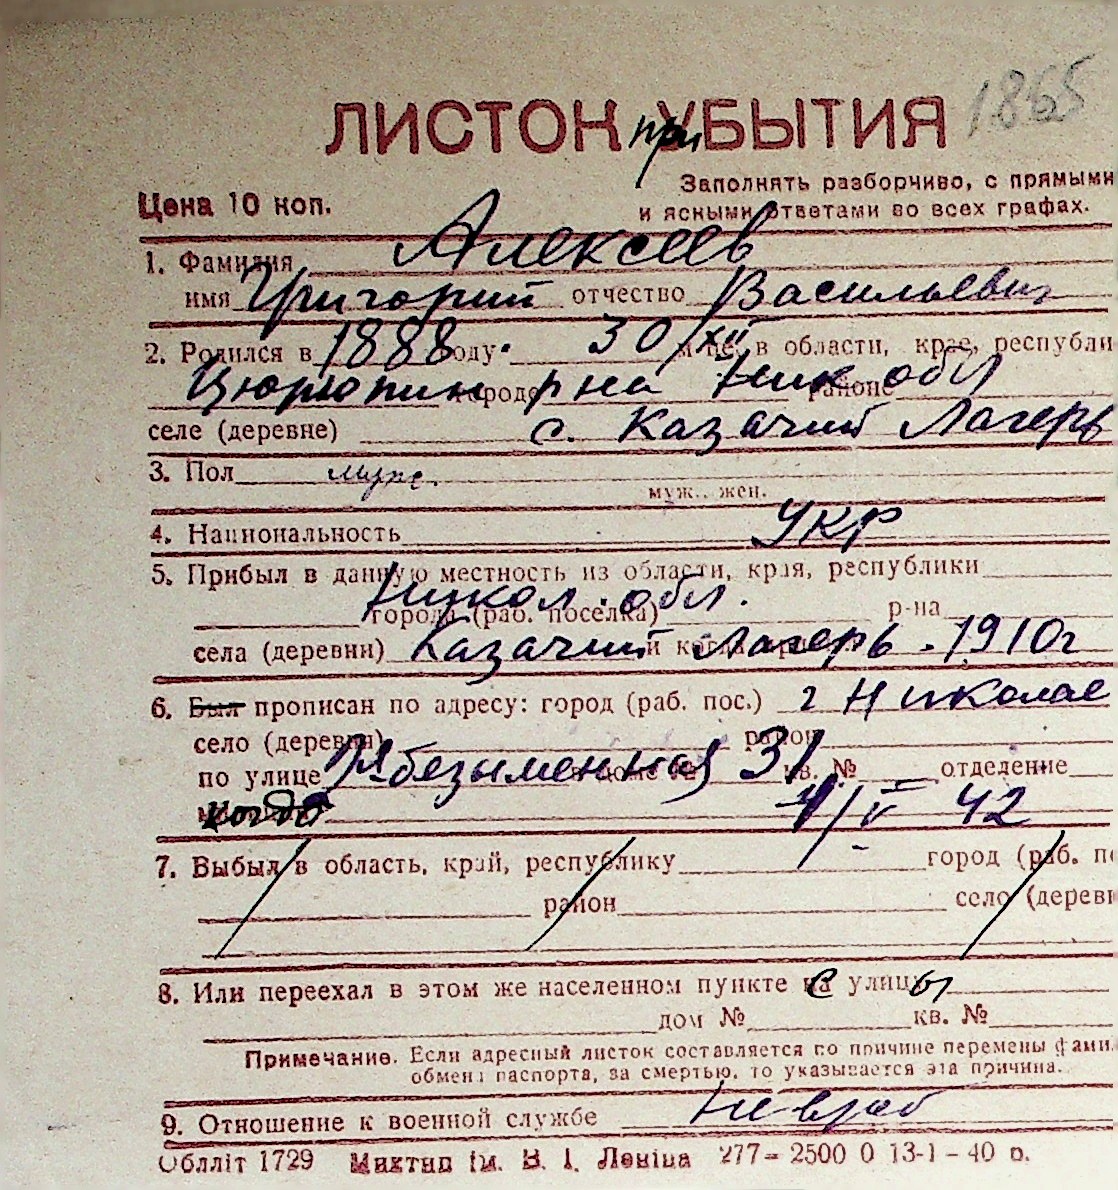 1865
ЛИСТОК при УБЫТИЯ
Заполнять разборчиво, с прямыми
Цена 10 коп.
и ясными ответами во всех графах.
1. Фамилия Алексеев
имя Григорий отчество Васильевич
2. Родился в 1888 году. 30/XII м-це, в области, крае, республи
Цюрюпин городе р на Ник обл районе
селе (деревне) с. Казачий Лагерь
3. Пол муж.
муж., жен.
4. Национальность Укр
5. Прибыл в данную местность из области, края, республики
Никол. обл.
города (раб. поселка) р-на
села (деревни) Казачий Лагерь. 1910г
6. Был прописан по адресу: город (раб. пос.) г Николае
село (деревня) район
по улице безыменная 31 кв. № отделение
когда 4/V 42
7. Выбыл в область, край, республику город (раб. п
район село (дерев
8. Или переехал в этом же населенном пункте с улицы
дом № кв. №
Примечание. Если адресный листок составляется по причине перемены фами
обмена паспорта, за смертью, то указывается эта причина.
9. Отношение к военной службе
Облліт 1729 Миктип ім. В. І. Леніна 277 – 2500 0 13-1 – 40 р.